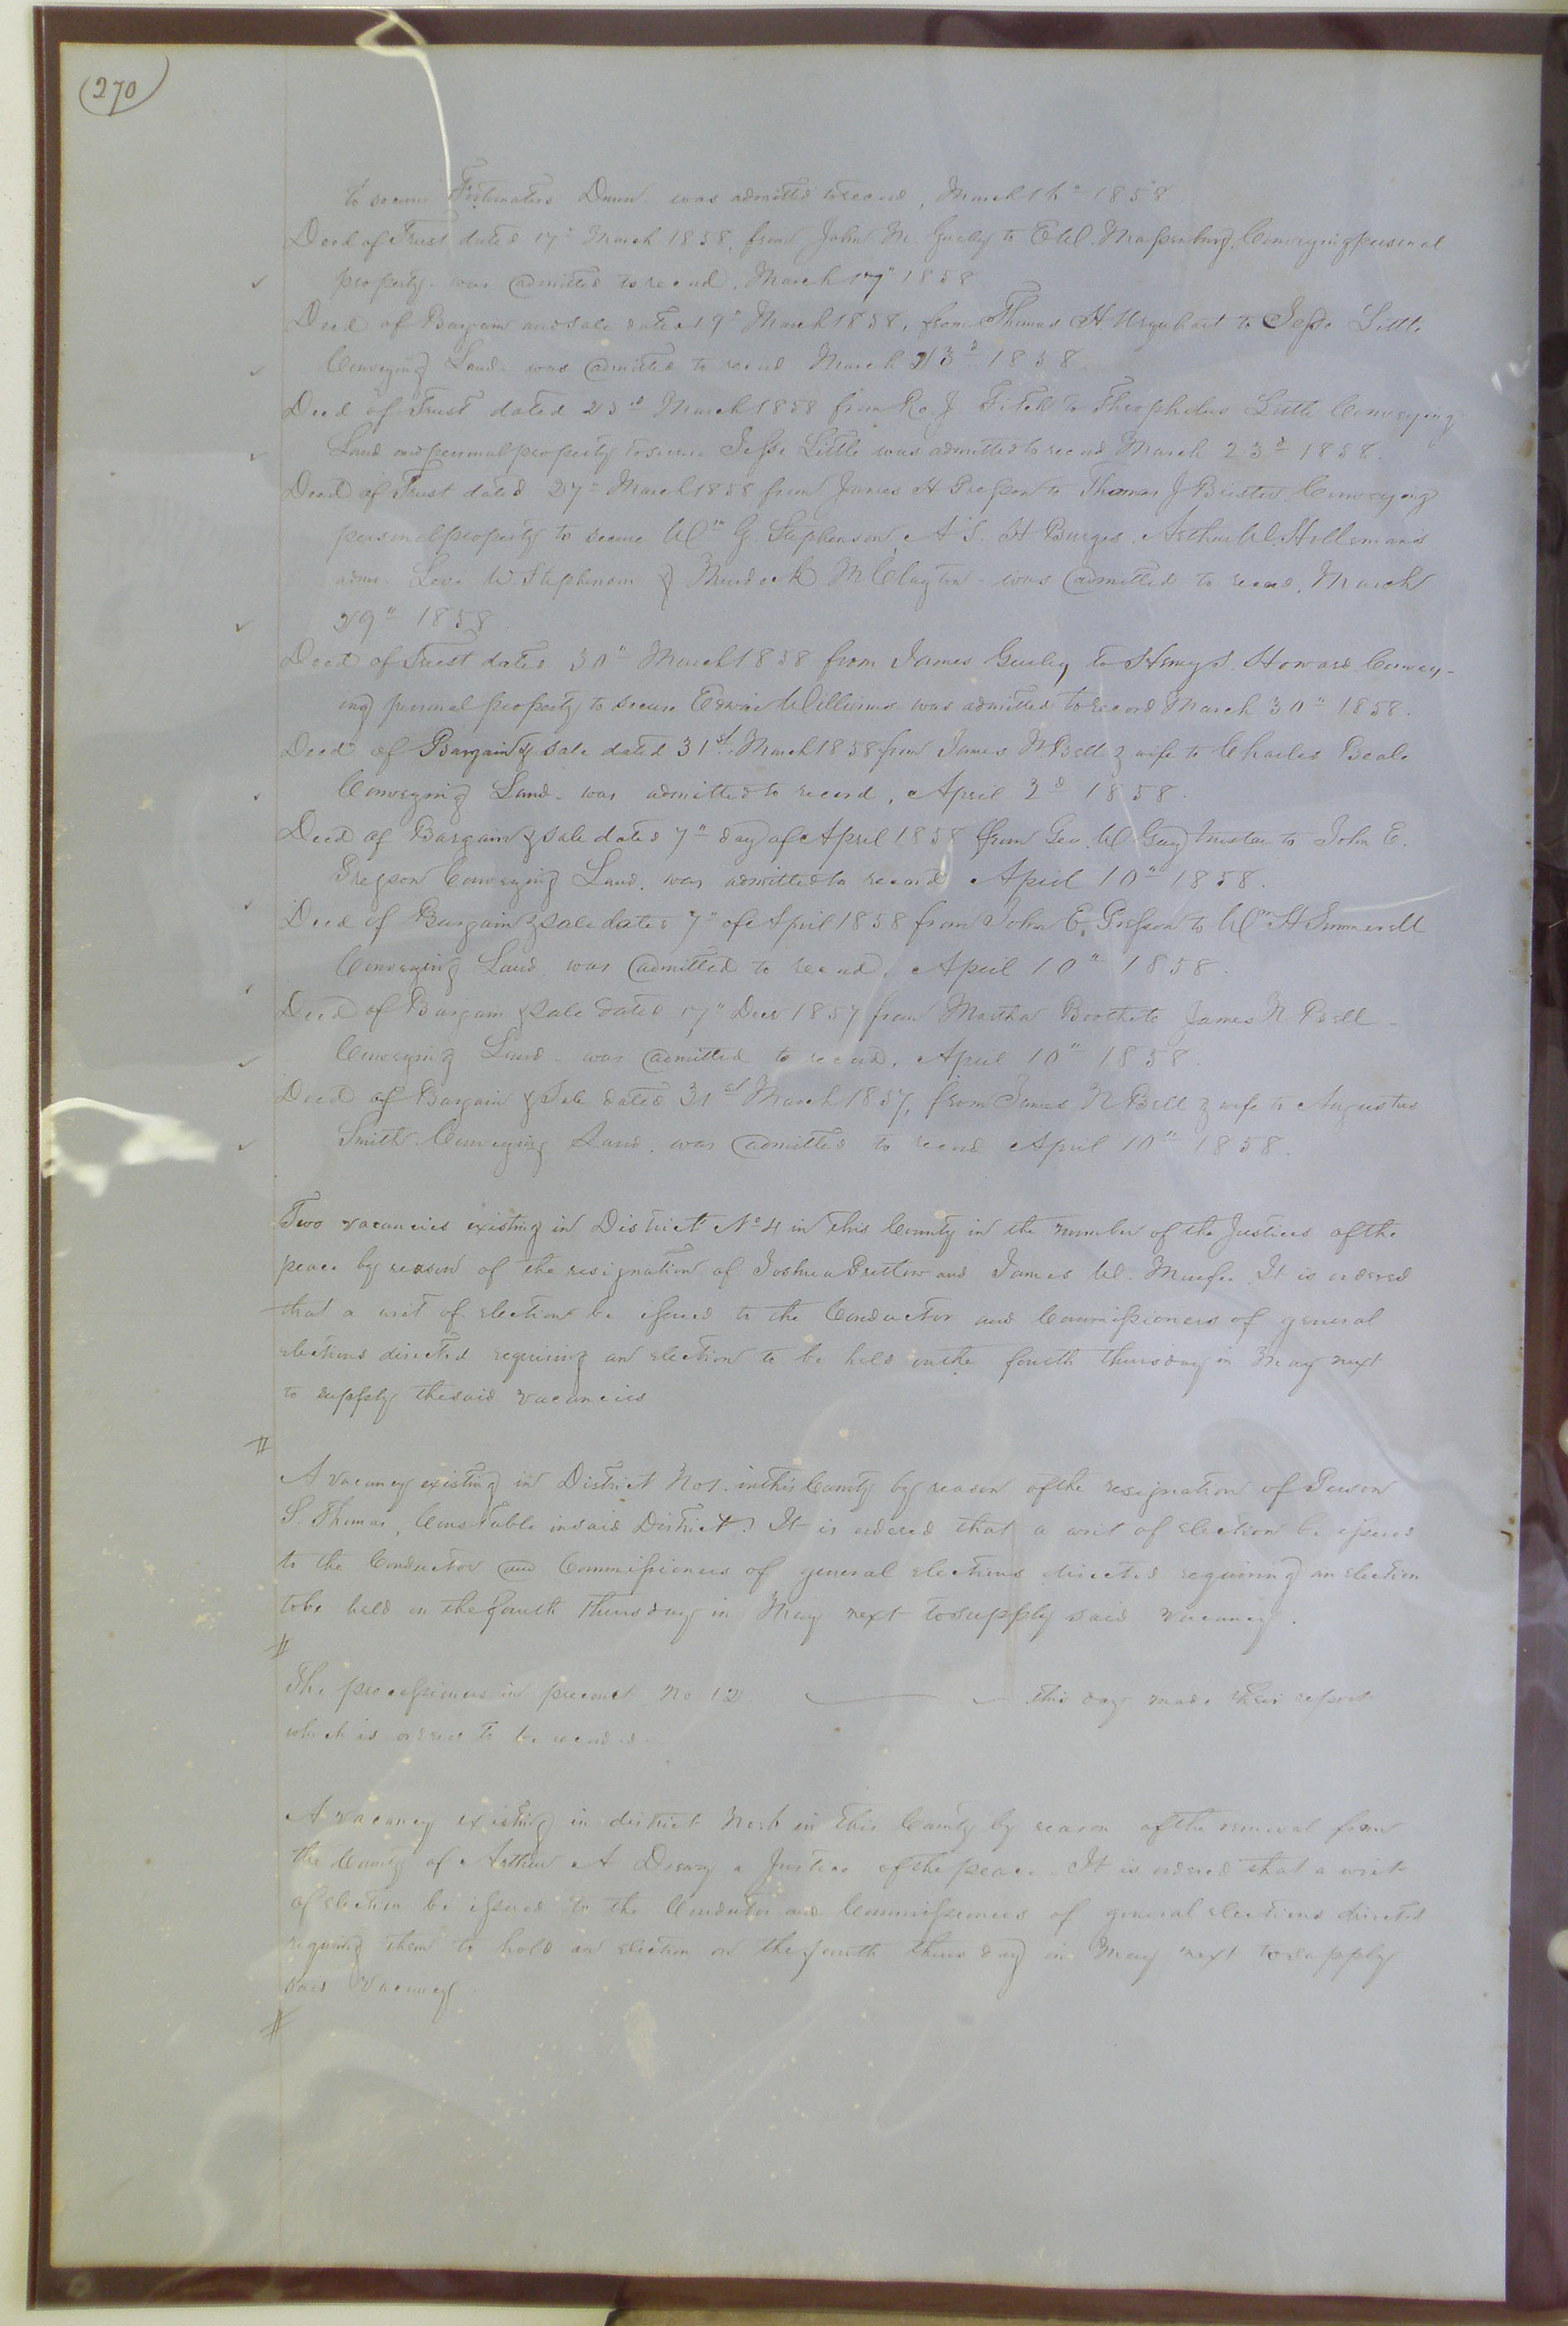 270
to secure Fortunatus Dunn was admitted to record, March 16" 1858
Deed of Trust dated 17" March 1858, from John M. Gurley to E W. Massenburg, Conveying personal
property was admitted to record, March 17" 1858
Deed of Bargain and sale dated 9" March 1858, from Thomas H Urquhart to Jesse Little
Conveying Land was admitted to record March 23d 1858.
Deed of Trust dated 23rd March 1858 from Ro. J. to Theophilus Little Conveying
Land and personal property to secure Jesse Little was admitted to record March 23d 1858.
Deed of Trust dated 27" March 1858 from James H Presson to Thomas J Conveying
personal property to secure Wm G. Stephenson, A. S. H Burges. Arthur W. Holleman's
admr. Levi W. Stephenson & Murdock M Clayton was admitted to record, March
29" 1858
Deed of Trust dated 30" March 1858 from James Gurley to Henry S. Howard Convey-
ing personal property to secure Edwin Williams was admitted to record March 30" 1858.
Deed of Bargain & sale dated 31st March 1858 from James N Bell & wife to Charles Beale
Conveying Land was admitted to record, April 2d 1858.
Deed of Bargain & sale dated 7" day of April 1858 from Geo. W Gay trustee to John E.
Presson Conveying Land, was admitted to record April 10" 1858.
Deed of Bargain & sale dated 7" of April 1858 from John E. Presson to Wm H Simmerell
Conveying Land, was admitted to record, April 10" 1858.
Deed of Bargain & sale dated 17" Decr 1857 from Martha Boothe to James N Bell
Conveying Land was admitted to record, April 10" 1858.
Deed of Bargain & Sale dated 31st March 1857, from James N Bell & wife to Augustus
Smith Conveying Land, was admitted to record April 10" 1858.
Two vacancies existing in District No 4 in this County in the number of the Justices of the
peace by reason of the resignation of Joshua Pretlow and James W. Murfee. It is ordered
that a writ of election be issued to the Conductor and Commissioners of general
elections directed requiring an election to be held on the fourth thursday in May next
to supply the said vacancies
#
A vacancy existing in District No 1. in this County by reason of the resignation of Person
S. Thomas, Constable in said District. It is ordered that a writ of election be issued
to the Conductor and Commissioners of general elections directed requiring an election
to be held on the fourth thursday in May next to supply said vacancy.
#
The processioners in precinct No 12 this day made their report
which is ordered to be recorded.
A vacancy existing in district in this County by reason of the removal from
the County of Arthur A Drewry a Justice of the peace. It is ordered that a writ
of election be issued to the Conductor and Commissioners of general elections directed
requiring them to hold an election on the fourth thursday in May next to supply
said vacancy
#